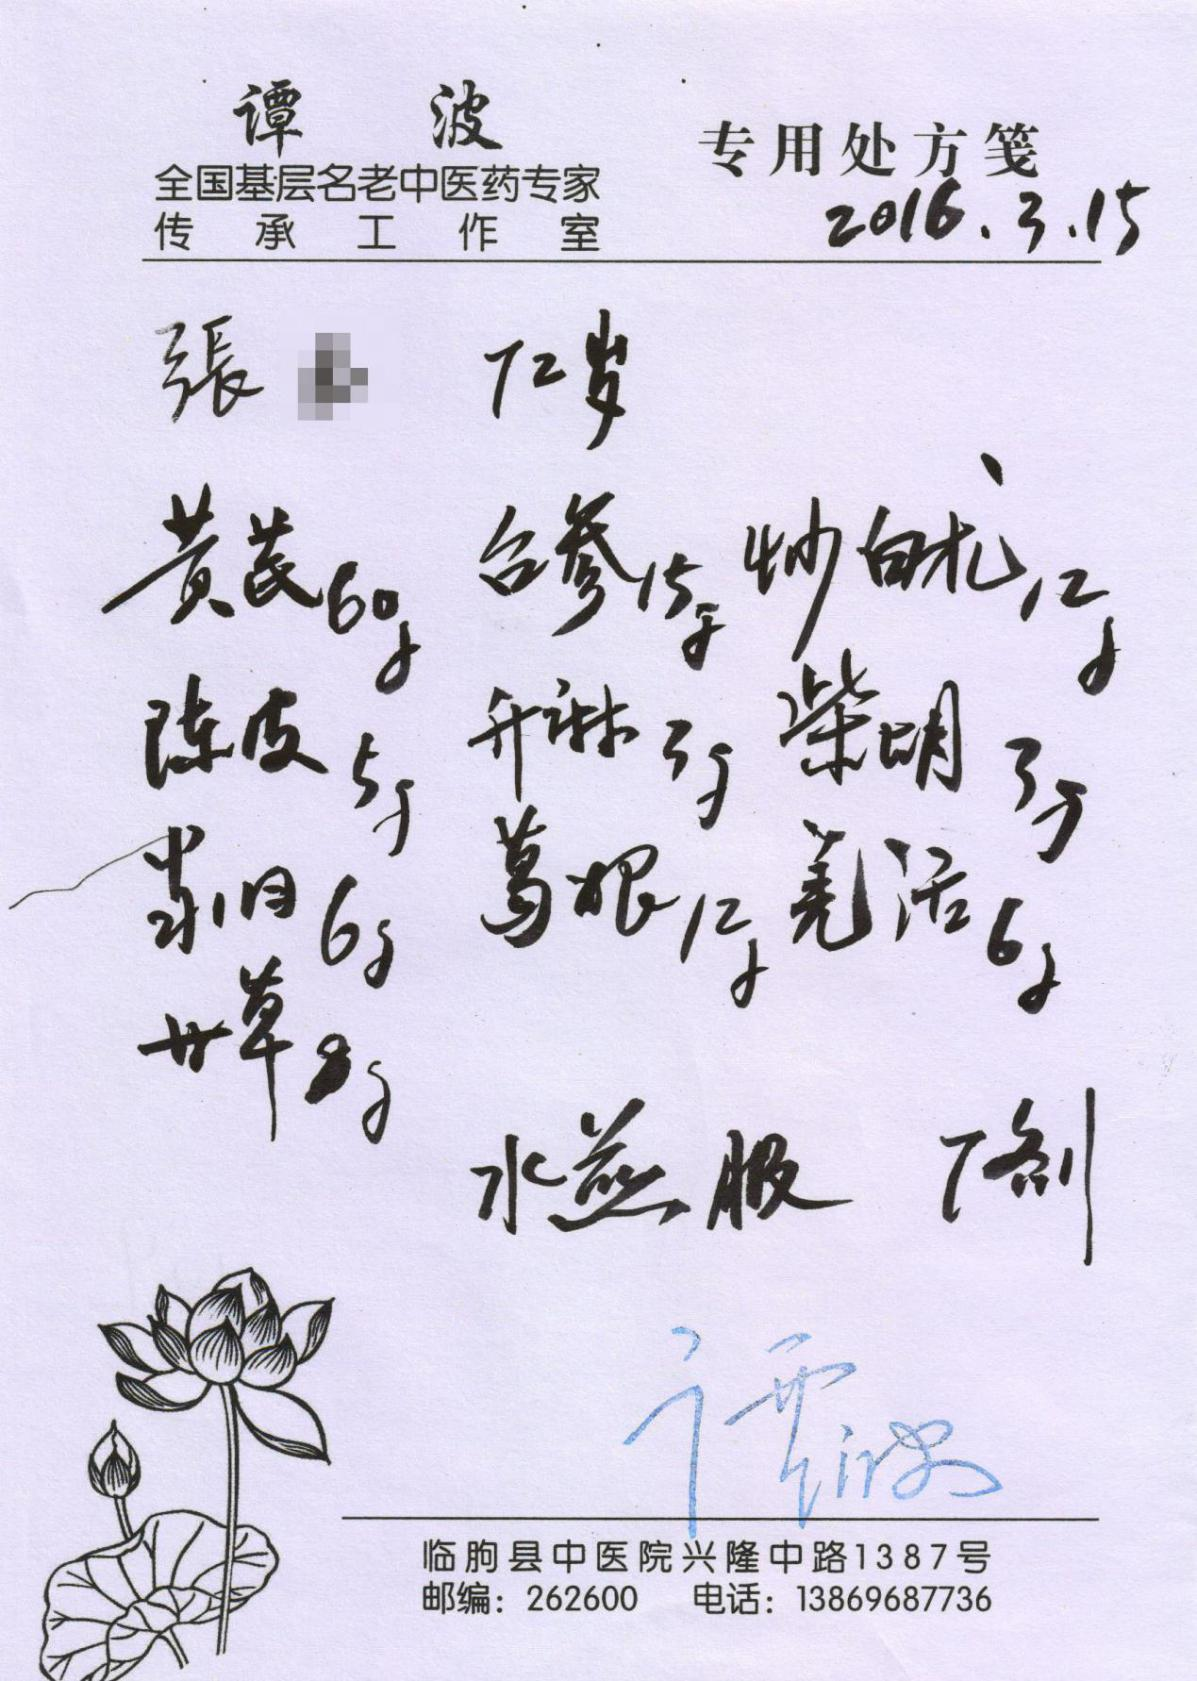 谭 波
全国基层名老中医药专家
传承工作室
专用处方笺
2016.3.15
張 72岁
黄芪60g 台参15g 炒白朮12g
陈皮5g 升麻3g 柴胡3g
当归6g 葛根12g 羌活6g
甘草g
水煎服 7剂
谭波
临朐县中医院兴隆中路1387号
邮编：262600 电话：13869687736